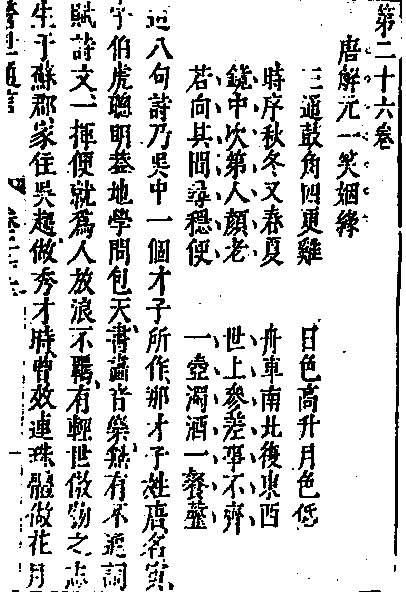 第二十六卷
唐解元一笑姻緣
三通鼓角四更雞 日色高升月色低
時序秋冬又春夏 舟車南北復東西
鏡中次第人顏老 世上參差事不齊
若向其間尋穩便 一壺濁酒一餐虀
這八句詩乃吳中一個才子所作那才子姓唐名寅
字伯虎聰明蓋地學問包天書畫音樂無有不通詞
賦詩文一揮便就爲人放浪不羈有輕世傲物之志
生于蘇郡家住吳趨做秀才時曾效連珠體做花月
警世通言 卷二十六